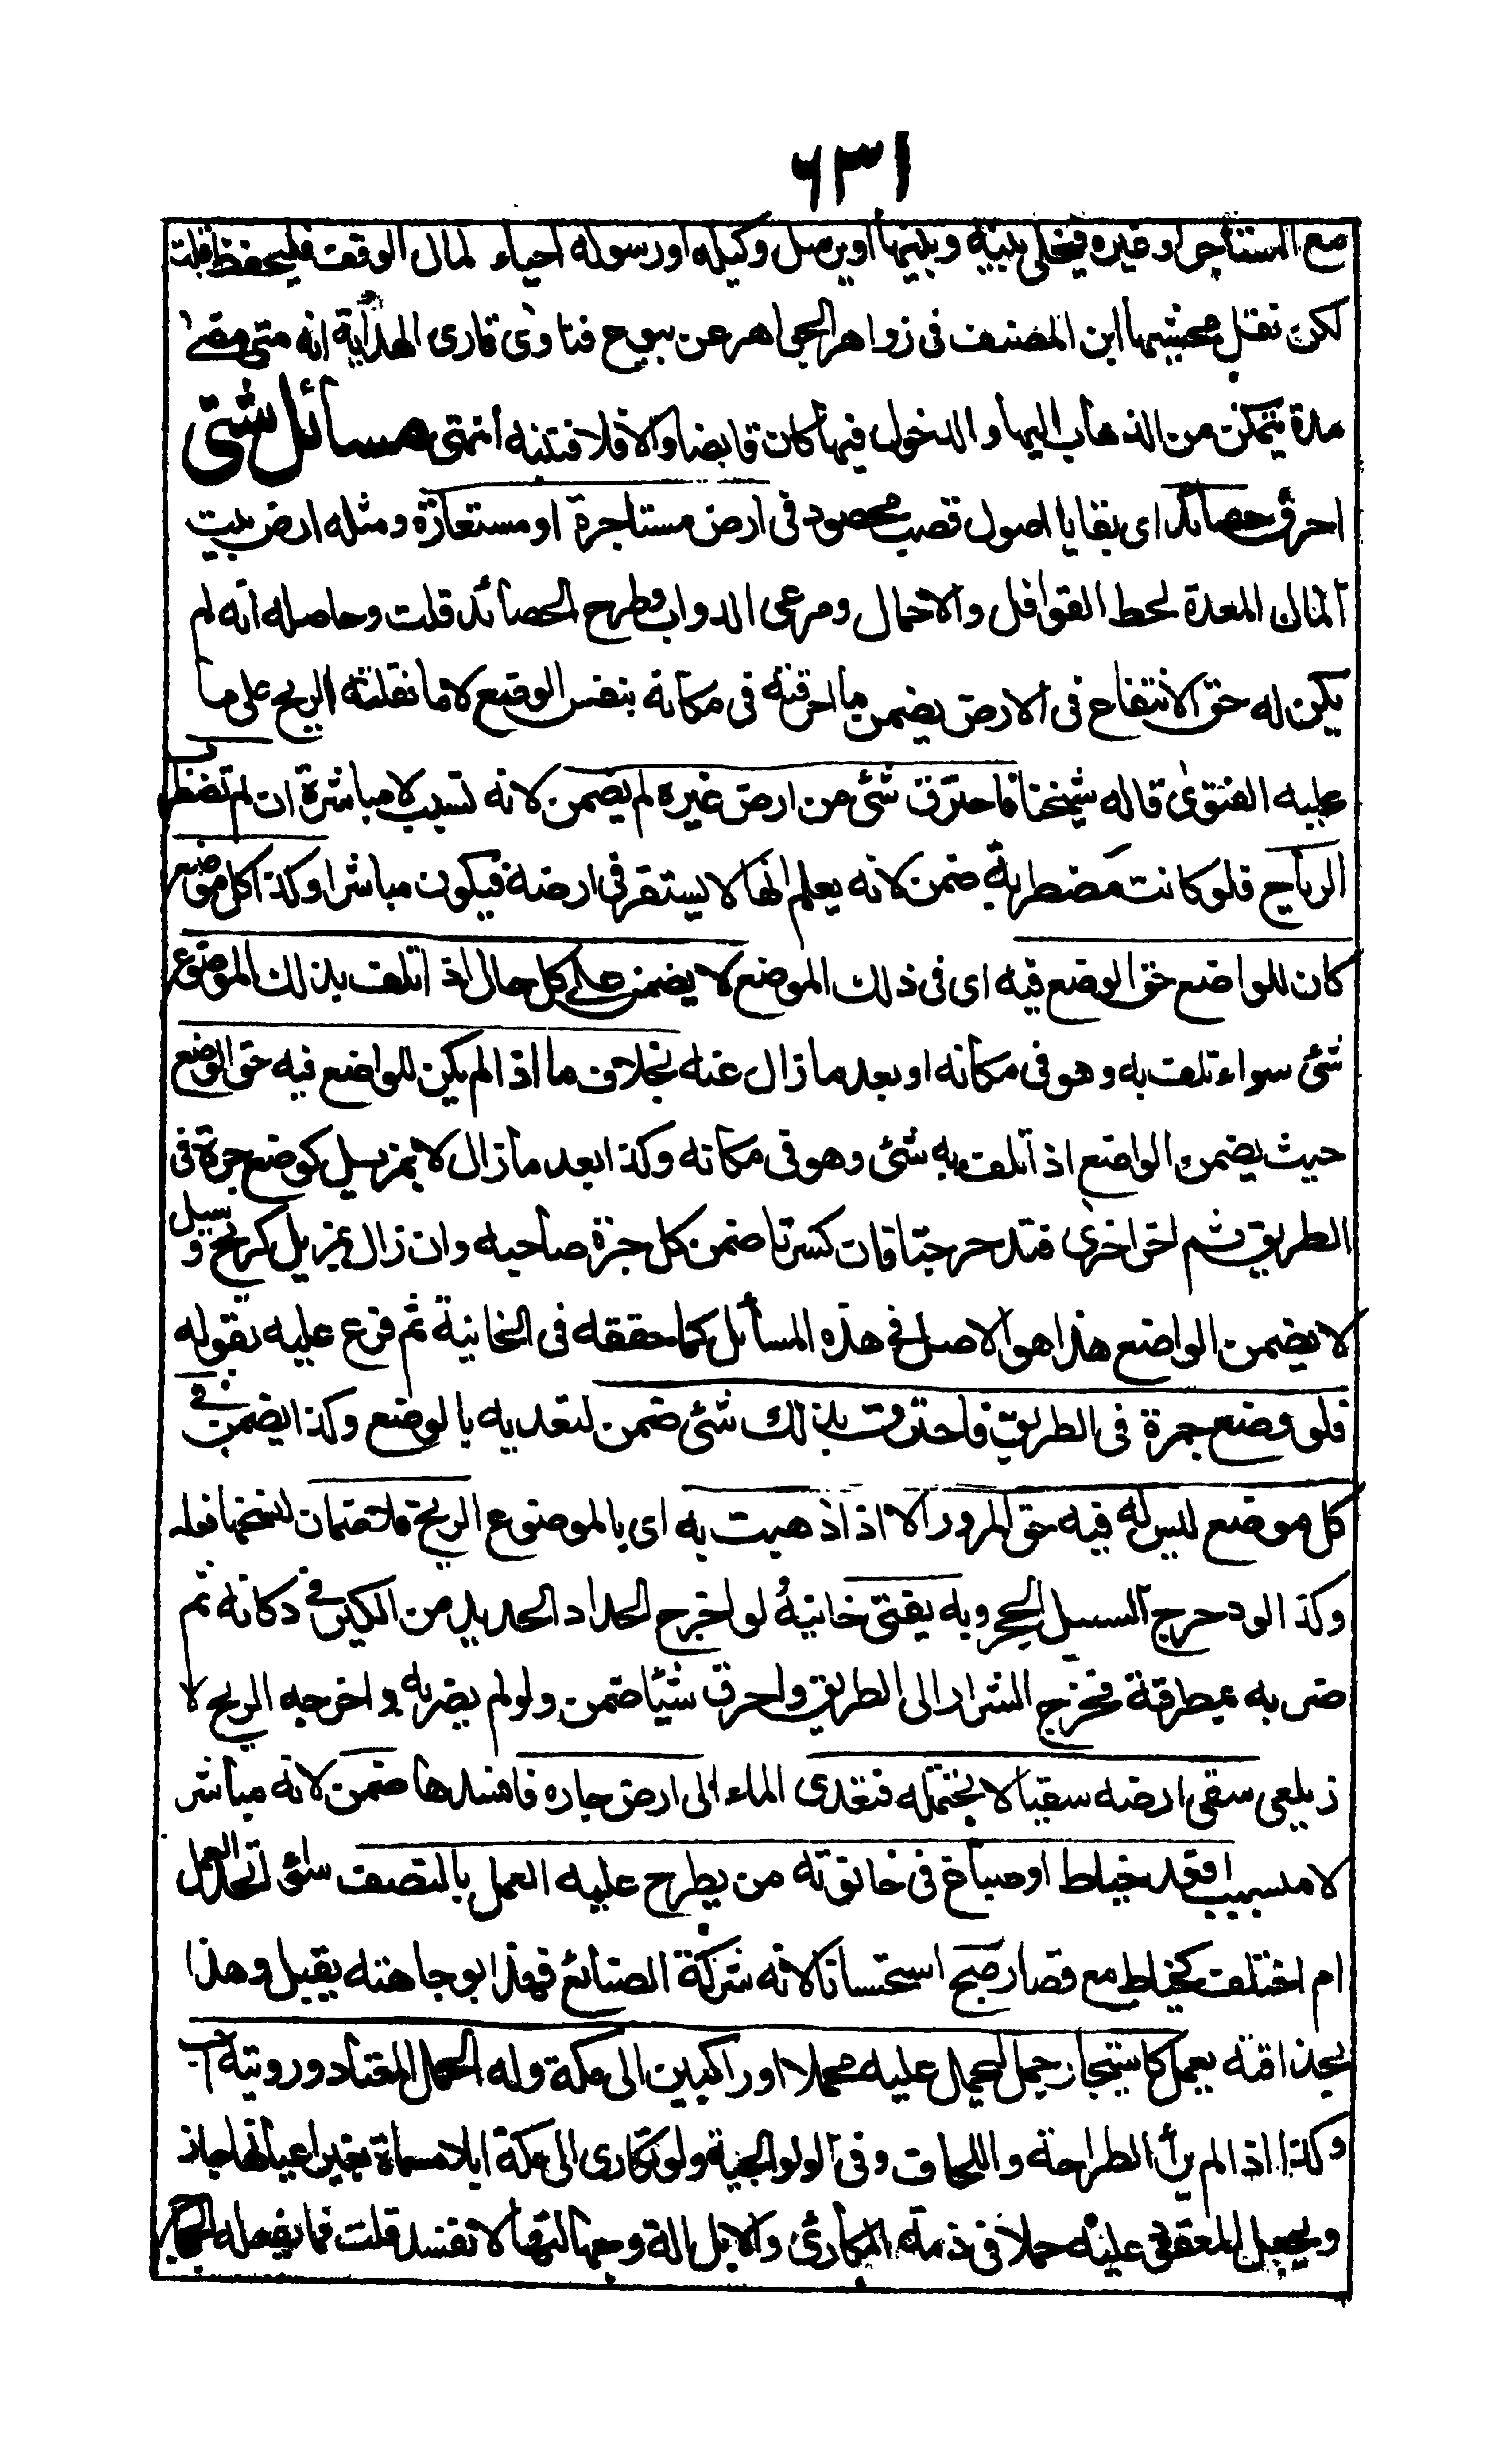 ٦٣١
مع المستاجر او غيره فيخلى بينه وبينها او يرسل وكيله او رسوله احياء لمال الوقف فليحفظ قلت
لكن نقل محشيها ابن المصنف فى زواهر الجواهر عن بيوع فتاوى قارى الهداية انه متى مضى
مدة يتمكن من الذهاب اليها والدخول فيها كان قابضا والا فلا فتنبه انتهى مسائل شتى
احرق حصائد اى بقايا اصول قصب محصود فى ارض مستاجرة او مستعارة ومثله ارض بيت
المال المعدة لحط القوافل والاحمال ومرعى الدواب وطرح الحصائد قلت وحاصله انه لم
يكن له حق الانتفاع فى الارض يضمن ما احرقته فى مكانه بنفس الوضع لا ما نقلته الريح على ما
عليه الفتوى قاله شيخنا فاحترق شئ من ارض غيره لم يضمن لانه تسبب لا مباشرة ان لم تضطرب
الرياح فلو كانت مضطربة ضمن لانه يعلم انها لا يستقر فى ارضه فيكون مباشرا وكذا كل موضع
كان للواضع حق الوضع فيه اى فى ذلك الموضع لا يضمن على كل حال اذ اتلف بذلك الموضوع
شئ سواء تلف به وهو فى مكانه او بعد ما زال عنه بخلاف ما اذا لم يكن للواضع فيه حق الوضع
حيث يضمن الواضع اذ اتلف به شئ وهو فى مكانه وكذا بعد ما زال لا بمزيل كوضع جرة فى
الطريق ثم اخرى فتدحرجتا فان كسرتا ضمن كل جرة صاحبه وان زال بمزيل كريح وسيل
لا يضمن الواضع هذا هو الاصل فى هذه المسائل كما حققه فى الخانية ثم فرع عليه بقوله
فلو وضع جمرة فى الطريق فاحترق بذلك شئ ضمن لتعديه بالوضع وكذا يضمن فى
كل موضع ليس له فيه حق المرور الا اذا ذهبت به اى بالموضوع الريح فلا ضمان لنسخها فعله
وكذا لو دحرج السيل الحجر وبه يفتى خانية لو اخرج الحداد الحديد من الكير فى دكانه ثم
ضربه بمطرقة فخرج الشرار الى الطريق واحرق شيئا ضمن ولو لم يضربه واخرجه الريح لا
زيلعى سقى ارضه سقيا لا تحتمله فتعدى الماء الى ارض جاره فافسدها ضمن لانه مباشر
لا متسبب اقعد خياط او صباغ فى حانوته من يطرح عليه العمل بالنصف سوا اتحد العمل
ام اختلف كخياط مع قصار صح استحسانا لانه شركة الصنائع فهذا بوجاهته يقبل وهذا
بحذاقته يعمل كاستيجار جمل ليحمل عليه محملا او راكبين الى مكة وله الحمل المعتاد ورويته احب
وكذا اذا لم ير الطراحة واللحاف وفى الولوالجية ولو تكارى الى مكة ابلا مسماة بغير اعيانها جاز
ويجعل المعقود عليه حملا فى ذمة المكارى والابل الة وجهالتها لا تفسد قلت فما يفعله